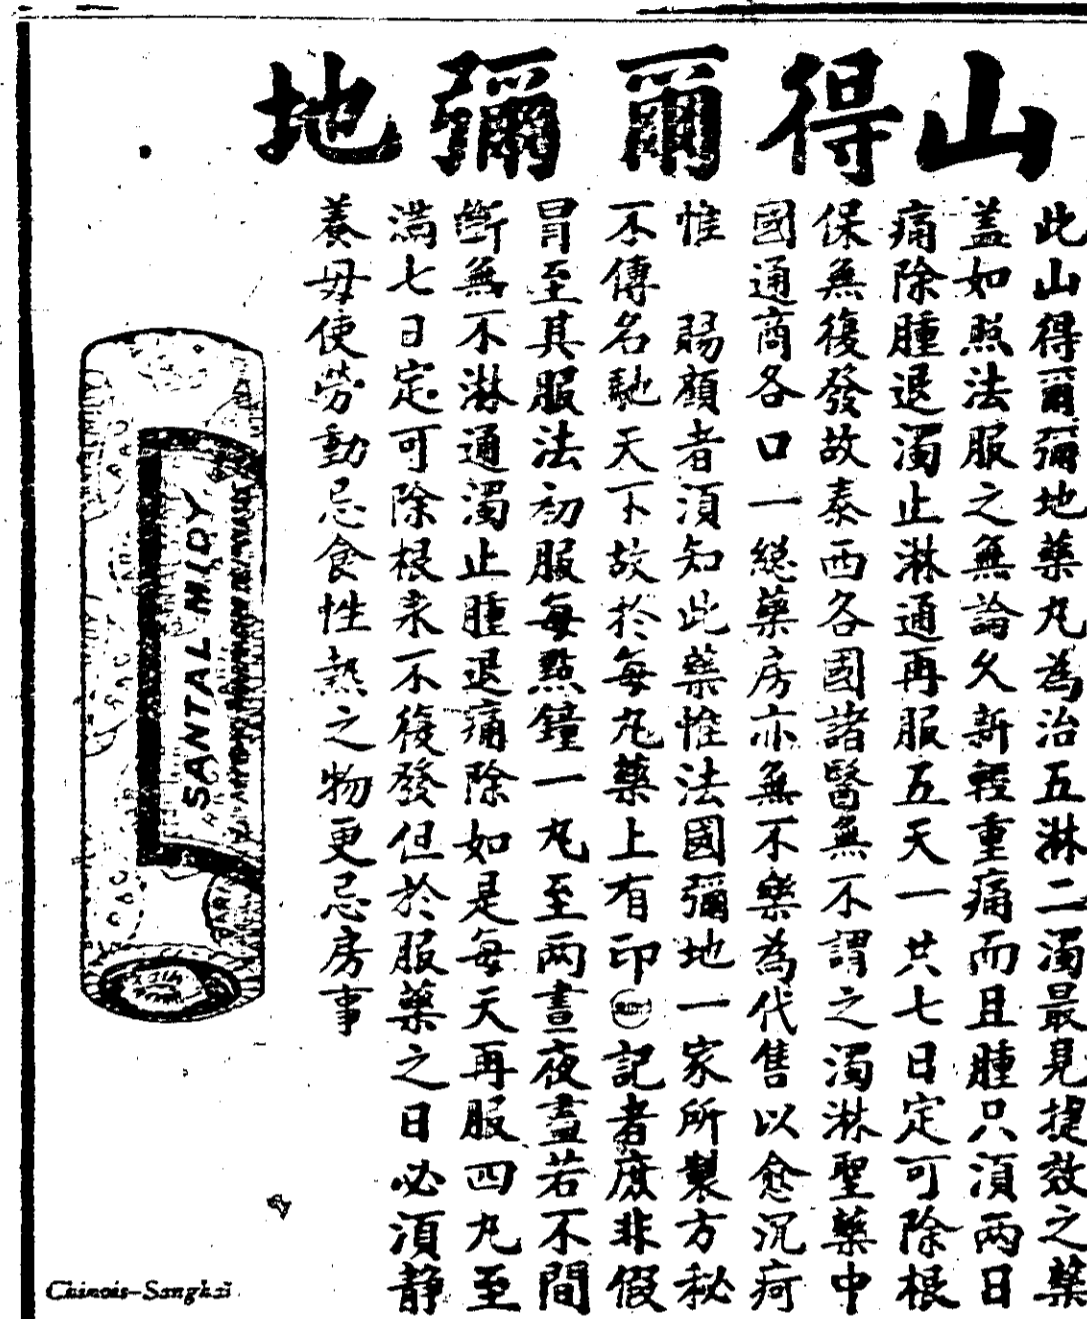 山得爾彌地
此山得爾彌地藥丸為治五淋二濁最見捷效之藥
蓋如照法服之無論久新輕重痛而且腫只須兩日
痛除腫退濁止淋通再服五天一共七日定可除根
保無復發故泰西各國諸醫無不謂之濁淋聖藥中
國通商各口一總藥房亦無不樂為代售以愈沉疴
惟 賜顧者須知此藥惟法國彌地一家所製方秘
不傳名馳天下故於每丸藥上有印記者庶非假
冒至其服法初服每點鐘一丸至兩晝夜盡若不間
斷無不淋通濁止腫退痛除如是每天再服四丸至
滿七日定可除根永不復發但於服藥之日必須靜
養毋使勞動忌食性熱之物更忌房事
SANTAL MIDY
PARIS
Chinois-Sanghaï